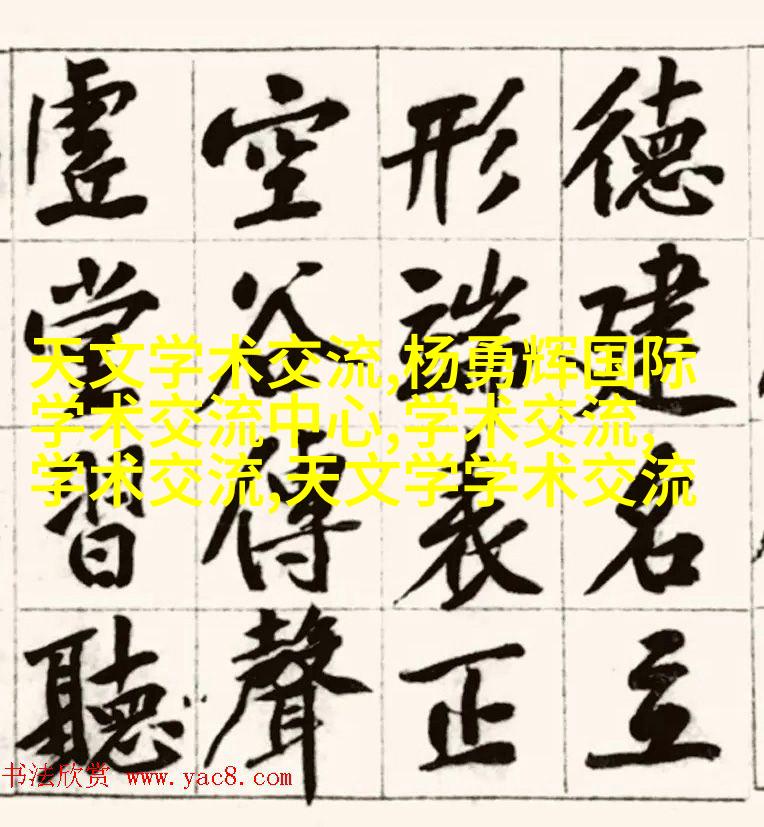 德建名立
形端表正
空谷傳聲
虛堂習聽
天文学术交流,杨勇辉国际
学术交流中心,学术交流,
学术交流,天文学学术交流
书法欣赏 www.yac8.com